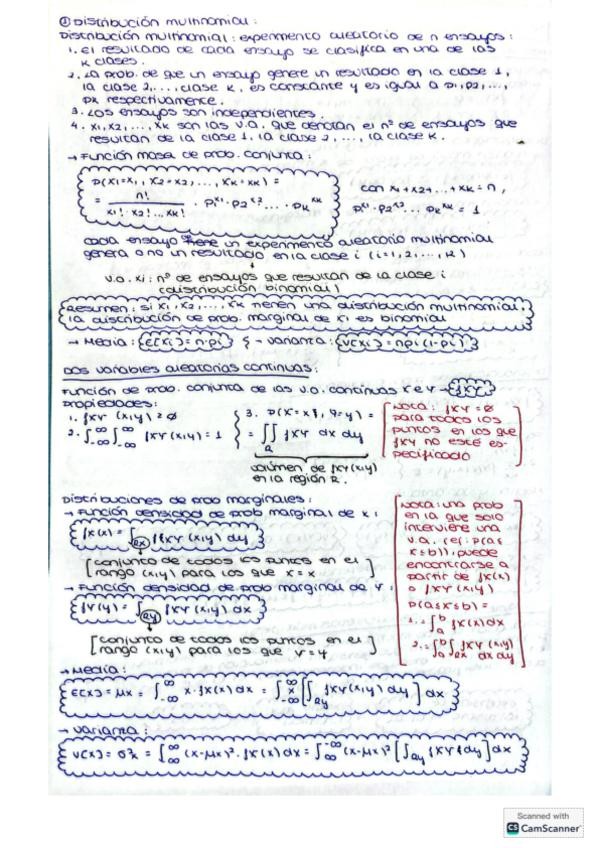 ① Distribución multinomial:
Distribución multinomial: experimento aleatorio de n ensayos:
1. El resultado de cada ensayo se clasifica en una de las
K clases.
2. La prob. de que un ensayo genere un resultado en la clase 1,
la clase 2,..., clase K, es constante y es igual a p1, p2,...,
pk respectivamente.
3. Los ensayos son independientes.
4. X1, X2, ..., Xk son las v.a. que denotan el nº de ensayos que
resultan de la clase 1, la clase 2, ..., la clase K.
→ Función masa de prob. conjunta:
P(X1=x1, X2=x2, ..., Xk=xk) =
= n! / x1! · x2! ... xk! · p1^x1 · p2^x2 ... · pk^xk
con x1+x2+...+xk=n,
p^x1 · p2^x2 ... pk^xk = 1
cada ensayo tiene un experimento aleatorio multinomial
genera o no un resultado en la clase i (i=1,2,...,k)
v.a. xi: nº de ensayos que resultan de la clase i
(distribución binomial)
Resumen: si X1, X2, ..., Xk tienen una distribución multinomial,
la distribución de prob. marginal de Xi es binomial
→ Media: E(Xi)=n·pi } { → varianza: V(Xi)=npi(1-pi)
Dos variables aleatorias continuas:
Función de prob. conjunta de las v.a. continuas X e Y → fXY
Propiedades:
1. fXY (x,y) ≥ 0
2. ∫-∞^∞ ∫-∞^∞ fXY(x,y) = 1
3. P(X=x, Y=y) =
= ∬ fXY dx dy
volumen de fXY(x,y)
en la región R.
Nota: fXY = 0
para todos los
puntos en los que
fXY no esté es-
pecificado
Distribuciones de prob marginales:
→ Función densidad de prob marginal de X:
fX(x) = ∫Rx fXY(x,y) dy
[conjunto de todos los puntos en el
rango (x,y) para los que X = x]
→ Función densidad de prob marginal de Y:
fY(y) = ∫Ry fXY (x,y) dx
[conjunto de todos los puntos en el
rango (x,y) para los que Y=y]
Nota: una prob
en la que solo
interviene una
v.a. (ej: P(a≤
x≤b)), puede
encontrarse a
partir de fX(x)
o fXY(x,y)
P(a≤x≤b) =
1. = ∫a^b fX(x)dx
2. = ∫a^b ∫Rx fXY(x,y) dx dy
→ Media:
E(X) = μx = ∫-∞^∞ x·fX(x) dx = ∫-∞^∞ x [∫Ry fXY(x,y) dy] dx
→ Varianza:
V(X) = σ²x = ∫-∞^∞ (x-μx)²·fX(x) dx = ∫-∞^∞ (x-μx)² [∫Ry fXY dy] dx
Scanned with
CS CamScanner